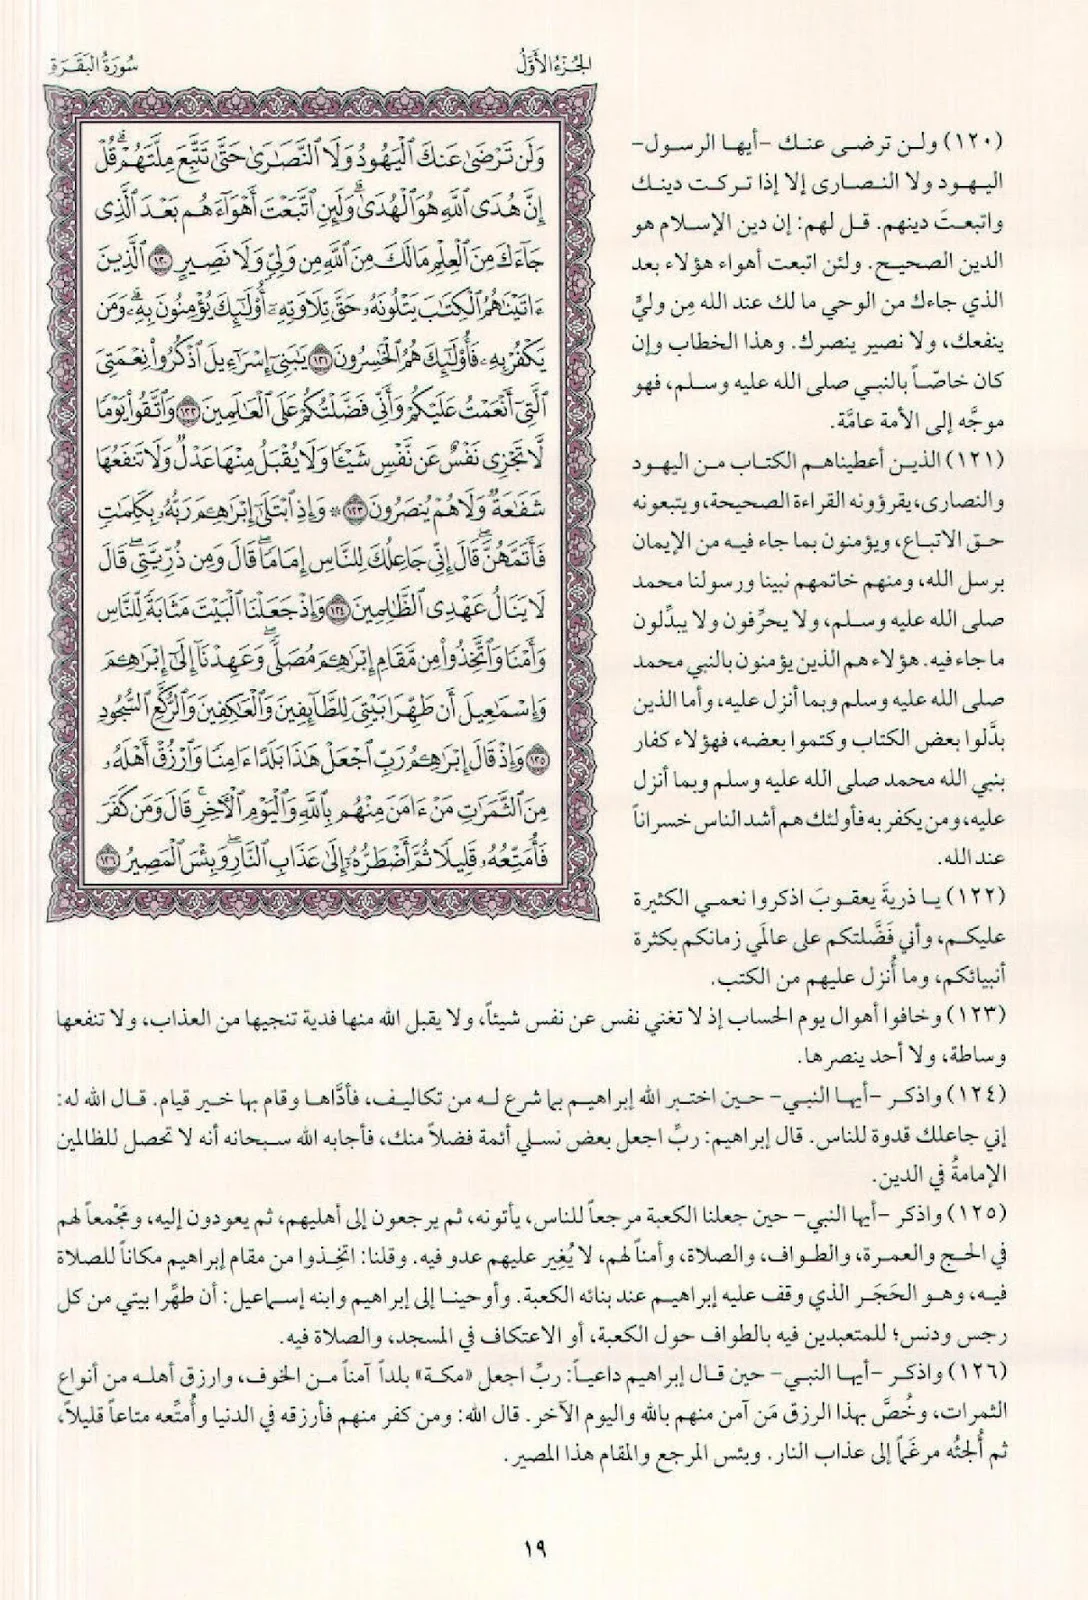 الجزء الأول
سورة البقرة
ولن ترضى عنك اليهود ولا النصارى حتى تتبع ملتهم قل
إن هدى الله هو الهدى ولئن اتبعت أهواءهم بعد الذي
جاءك من العلم ما لك من الله من ولي ولا نصير ١٢٠ الذين
ءاتينهم الكتب يتلونه حق تلاوته أولئك يؤمنون به ومن
يكفر به فأولئك هم الخسرون ١٢١ يبني إسرءيل اذكروا نعمتي
التي أنعمت عليكم وأني فضلتكم على العلمين ١٢٢ واتقوا يوما
لا تجزي نفس عن نفس شيئا ولا يقبل منها عدل ولا تنفعها
شفعة ولا هم ينصرون ١٢٣ ۞ وإذ ابتلى إبرهم ربه بكلمت
فأتمهن قال إني جاعلك للناس إماما قال ومن ذريتي قال
لا ينال عهدي الظلمين ١٢٤ وإذ جعلنا البيت مثابة للناس
وأمنا واتخذوا من مقام إبرهم مصلى وعهدنا إلى إبرهم
وإسمعيل أن طهرا بيتي للطائفين والعكفين والركع السجود
١٢٥ وإذ قال إبرهم رب اجعل هذا بلدا ءامنا وارزق أهله
من الثمرت من ءامن منهم بالله واليوم الأخر قال ومن كفر
فأمتعه قليلا ثم أضطره إلى عذاب النار وبئس المصير ١٢٦
(١٢٠) ولن ترضى عنك -أيها الرسول-
اليهود ولا النصارى إلا إذا تركت دينك
واتبعتَ دينهم. قل لهم: إن دين الإسلام هو
الدين الصحيح. ولئن اتبعت أهواء هؤلاء بعد
الذي جاءك من الوحي ما لك عند الله مِن وليٍّ
ينفعك، ولا نصير ينصرك. وهذا الخطاب وإن
كان خاصّاً بالنبي صلى الله عليه وسلم، فهو
موجَّه إلى الأمة عامَّة.
(١٢١) الذين أعطيناهم الكتاب من اليهود
والنصارى، يقرؤونه القراءة الصحيحة، ويتبعونه
حق الاتباع، ويؤمنون بما جاء فيه من الإيمان
برسل الله، ومنهم خاتمهم نبينا ورسولنا محمد
صلى الله عليه وسلم، ولا يحرِّفون ولا يبدِّلون
ما جاء فيه. هؤلاء هم الذين يؤمنون بالنبي محمد
صلى الله عليه وسلم وبما أنزل عليه، وأما الذين
بدَّلوا بعض الكتاب وكتموا بعضه، فهؤلاء كفار
بنبي الله محمد صلى الله عليه وسلم وبما أنزل
عليه، ومن يكفر به فأولئك هم أشد الناس خسراناً
عند الله.
(١٢٢) يا ذريةَ يعقوبَ اذكروا نعمي الكثيرة
عليكم، وأني فَضَّلتكم على عالمَي زمانكم بكثرة
أنبيائكم، وما أُنزل عليهم من الكتب.
(١٢٣) وخافوا أهوال يوم الحساب إذ لا تغني نفس عن نفس شيئاً، ولا يقبل الله منها فدية تنجيها من العذاب، ولا تنفعها
وساطة، ولا أحد ينصرها.
(١٢٤) واذكر -أيها النبي- حين اختبر الله إبراهيم بما شرع له من تكاليف، فأدَّاها وقام بها خير قيام. قال الله له:
إني جاعلك قدوة للناس. قال إبراهيم: ربِّ اجعل بعض نسلي أئمة فضلاً منك، فأجابه الله سبحانه أنه لا تحصل للظالمين
الإمامةُ في الدين.
(١٢٥) واذكر -أيها النبي- حين جعلنا الكعبة مرجعاً للناس، يأتونه، ثم يرجعون إلى أهليهم، ثم يعودون إليه، ومَجْمعاً لهم
في الحج والعمرة، والطواف، والصلاة، وأمناً لهم، لا يُغِير عليهم عدو فيه. وقلنا: اتخِذوا من مقام إبراهيم مكاناً للصلاة
فيه، وهو الحَجَر الذي وقف عليه إبراهيم عند بنائه الكعبة. وأوحينا إلى إبراهيم وابنه إسماعيل: أن طهِّرا بيتي من كل
رجس ودنس؛ للمتعبدين فيه بالطواف حول الكعبة، أو الاعتكاف في المسجد، والصلاة فيه.
(١٢٦) واذكر -أيها النبي- حين قال إبراهيم داعياً: ربِّ اجعل «مكة» بلداً آمناً من الخوف، وارزق أهله من أنواع
الثمرات، وخُصَّ بهذا الرزق مَن آمن منهم بالله واليوم الآخر. قال الله: ومن كفر منهم فأرزقه في الدنيا وأُمتِّعه متاعاً قليلاً،
ثم أُلجئُه مرغَماً إلى عذاب النار. وبئس المرجع والمقام هذا المصير.
١٩